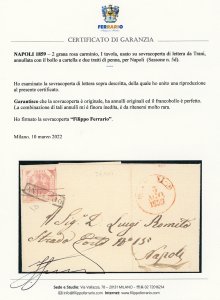 FERRARIO
CERTIFICATO DI GARANZIA
NAPOLI 1859 – 2 grana rosa carminio, I tavola, usato su sovracoperta di lettera da Trani,
annullata con il bollo a cartella e due tratti di penna, per Napoli (Sassone n. 5d).
Ho esaminato la sovracoperta di lettera sopra descritta, della quale ho unito una riproduzione
al presente certificato.
Garantisco che la sovracoperta è originale, ha annulli originali ed il francobollo è perfetto.
La combinazione di tali annulli mi è finora inedita, è da ritenersi molto rara.
Ho firmato la sovracoperta "Filippo Ferrario".
Milano, 10 marzo 2022
A Sig. D. Luigi Bonito
Strada Costa N° 155
Napoli
Sede e Studio:
20131 - MILANO